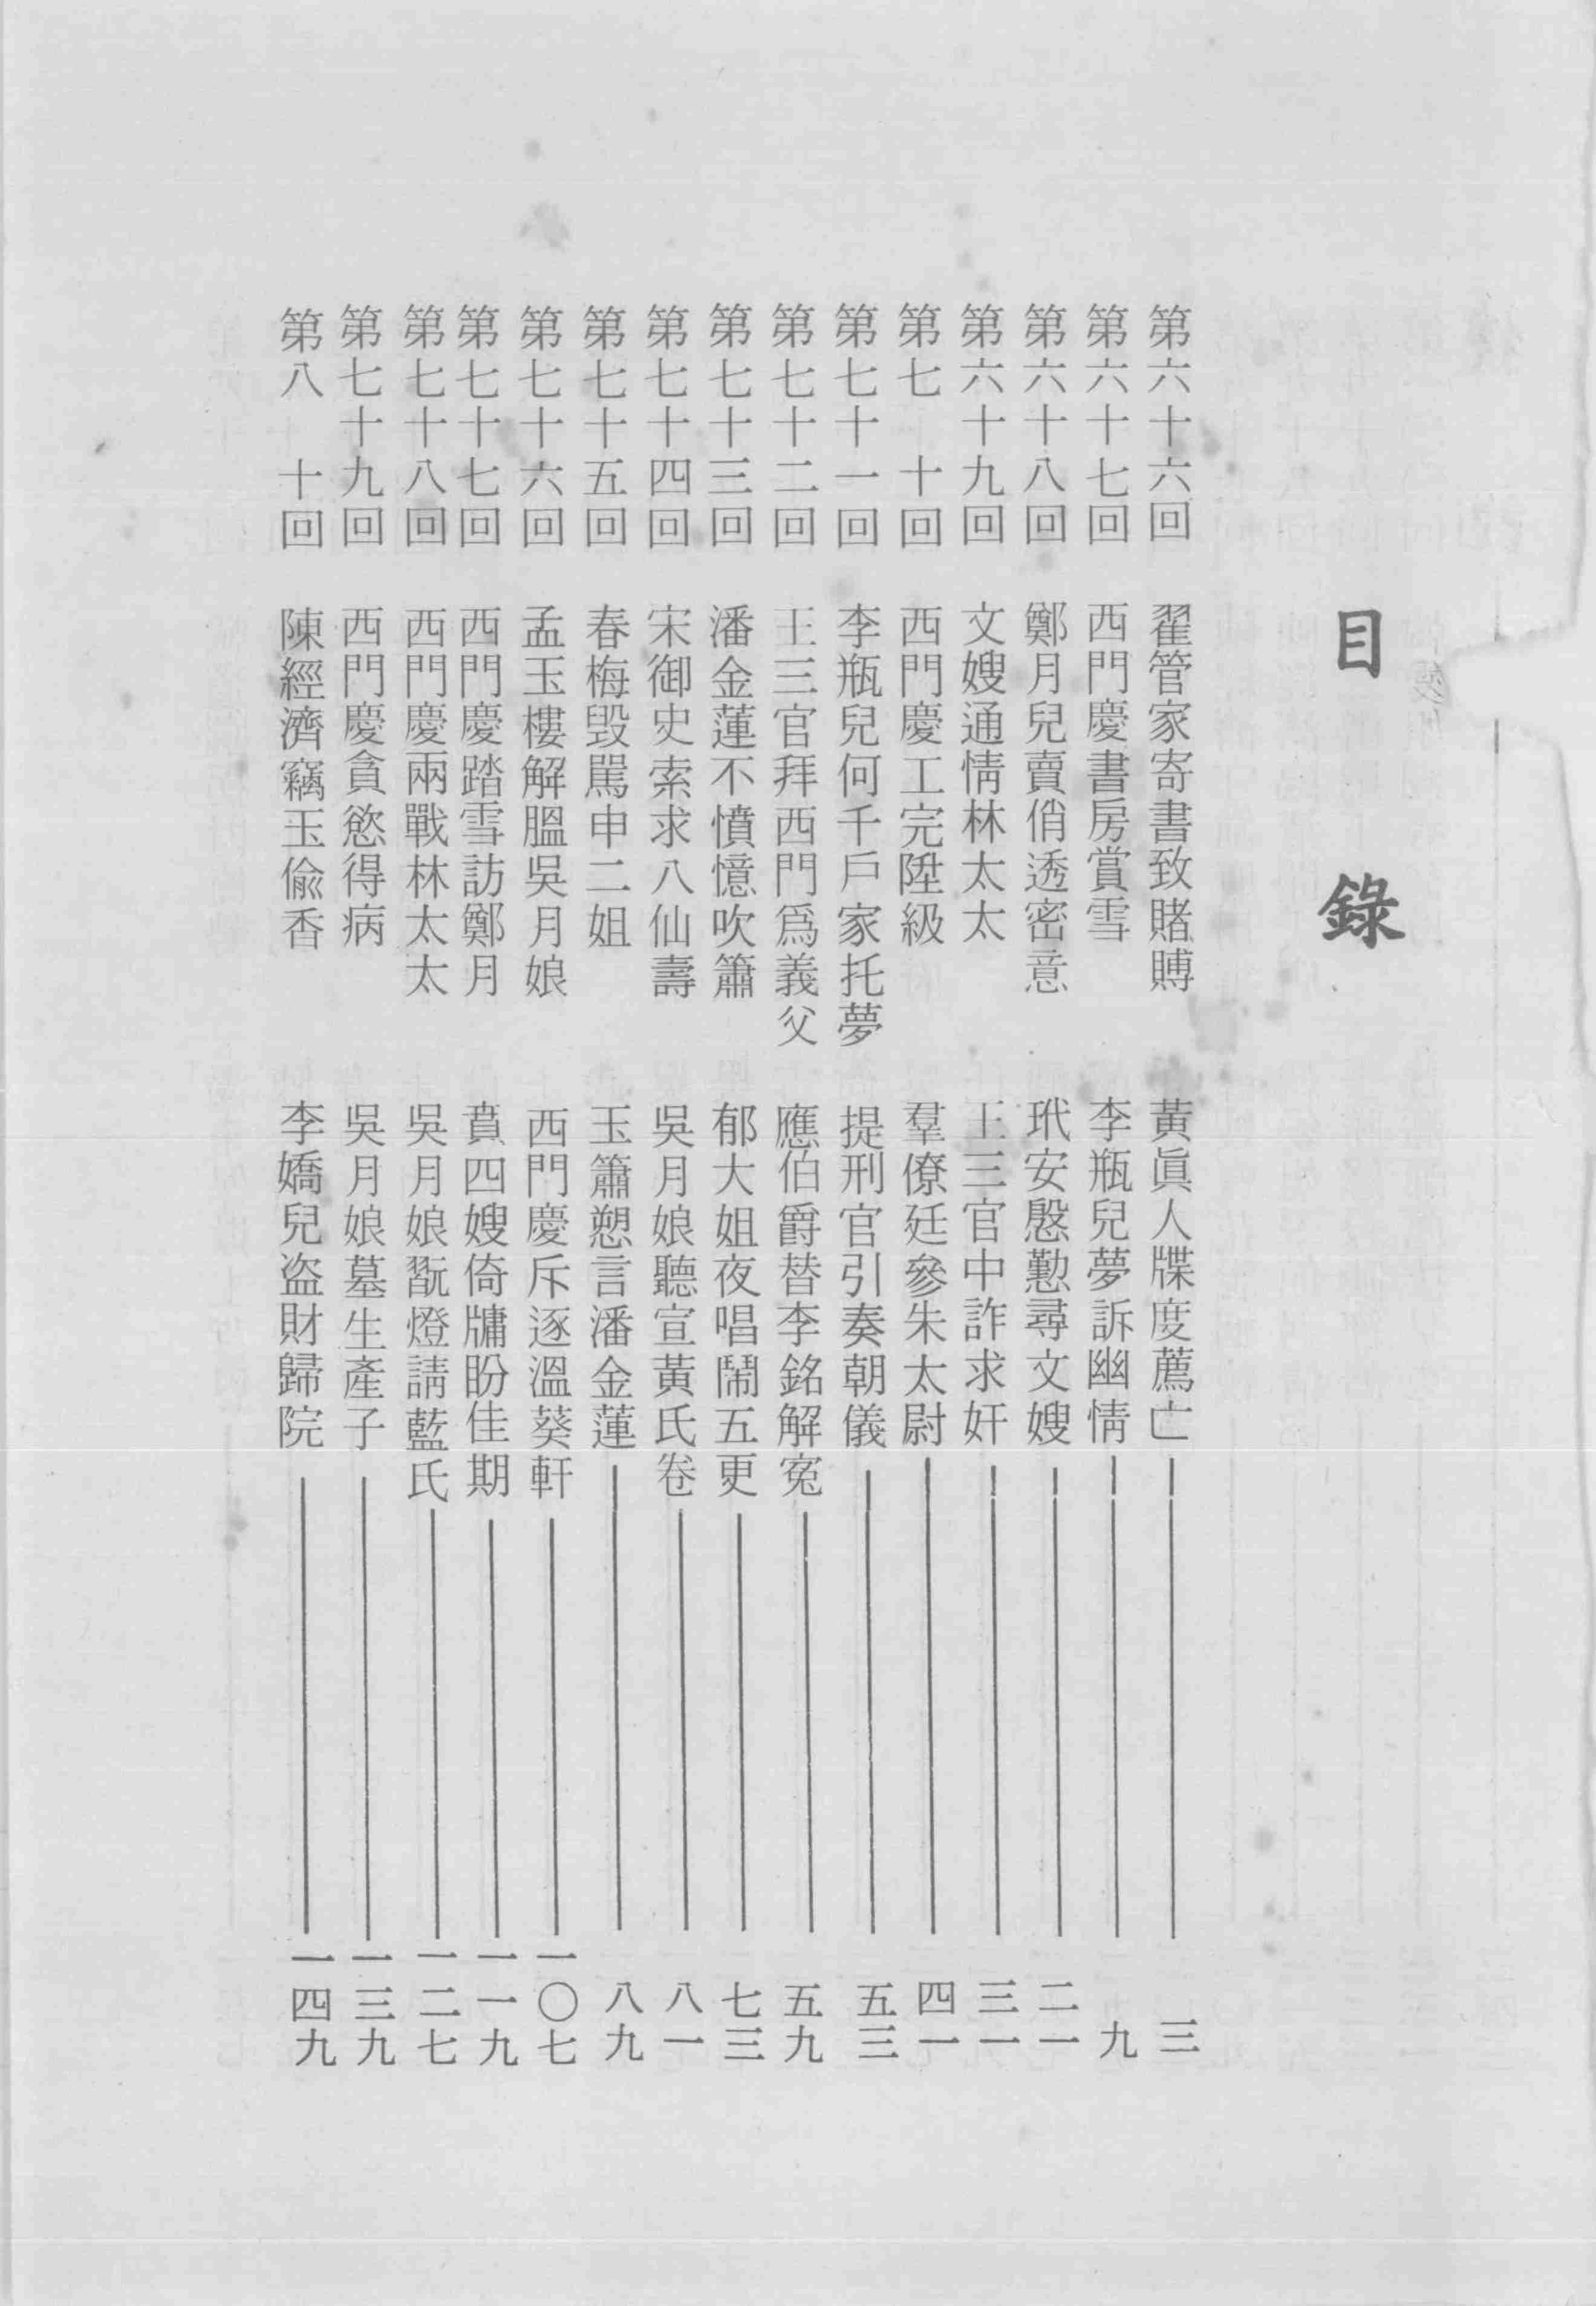 目錄
第六十六回 翟管家寄書致賭賻 黃眞人牒度薦亡 三
第六十七回 西門慶書房賞雪 李瓶兒夢訴幽情 九
第六十八回 鄭月兒賣俏透密意 玳安慇懃尋文嫂 二一
第六十九回 文嫂通情林太太 王三官中詐求奸 三一
第七十回 西門慶工完陞級 羣僚廷參朱太尉 四一
第七十一回 李瓶兒何千戶家托夢 提刑官引奏朝儀 五三
第七十二回 王三官拜西門爲義父 應伯爵替李銘解寃 五九
第七十三回 潘金蓮不憤憶吹簫 郁大姐夜唱鬧五更 七三
第七十四回 宋御史索求八仙壽 吳月娘聽宣黃氏卷 八一
第七十五回 春梅毀駡申二姐 玉簫愬言潘金蓮 八九
第七十六回 孟玉樓解膃吳月娘 西門慶斥逐溫葵軒 一〇七
第七十七回 西門慶踏雪訪鄭月 賁四嫂倚牗盼佳期 一一九
第七十八回 西門慶兩戰林太太 吳月娘翫燈請藍氏 一二七
第七十九回 西門慶貪慾得病 吳月娘墓生產子 一三九
第八十回 陳經濟竊玉偸香 李嬌兒盜財歸院 一四九